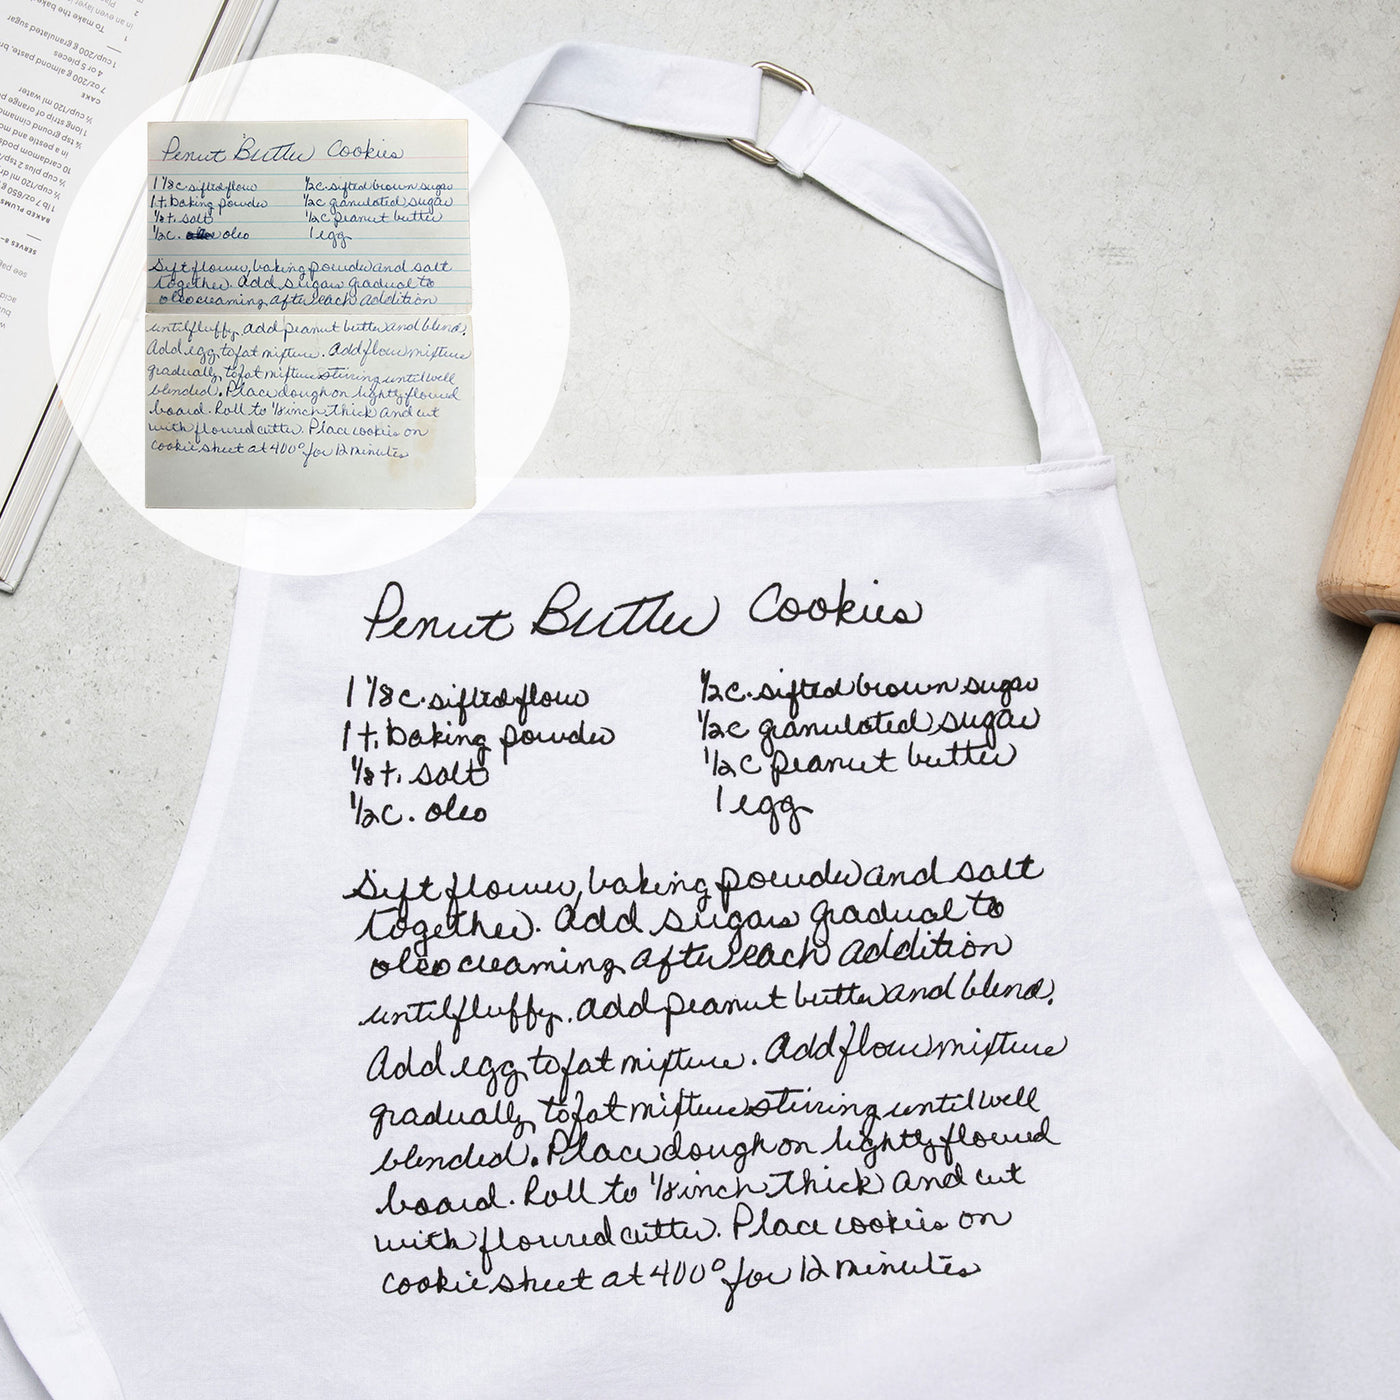 To make the bake
1
1 cup/200 g granulated sugar
4 or 5 pieces
7 oz/200 g almond paste, br
CAKE
½ cup/120 ml water
1 long strip of orange
½ tsp ground cinnamo
in a pestle and mo
10 cardamom pods
BAKED PLUMS
SERVES
Penut Butter Cookies
1 1/8 c. sifted flour
1 t. baking powder
1/8 t. salt
1/2 c. oleo
1/2 c. sifted brown sugar
1/2 c granulated sugar
1/2 c peanut butter
1 egg
Sift flower, baking powder and salt
together. Add sugars gradual to
oleo creaming after each addition
until fluffy. Add peanut butter and blend.
Add egg to fat mixture. Add flour mixture
gradually to fat mixture stirring until well
blended. Place dough on lightly floured
board. Roll to 1/8 inch thick and cut
with floured cutter. Place cookies on
cookie sheet at 400° for 12 minutes
Penut Butter Cookies
1 1/8 c. sifted flour
1 t. baking powder
1/8 t. salt
1/2 c. oleo
1/2 c. sifted brown sugar
1/2 c granulated sugar
1/2 c peanut butter
1 egg
Sift flower, baking powder and salt
together. Add sugars gradual to
oleo creaming after each addition
until fluffy. Add peanut butter and blend.
Add egg to fat mixture. Add flour mixture
gradually to fat mixture stirring until well
blended. Place dough on lightly floured
board. Roll to 1/8 inch thick and cut
with floured cutter. Place cookies on
cookie sheet at 400° for 12 minutes